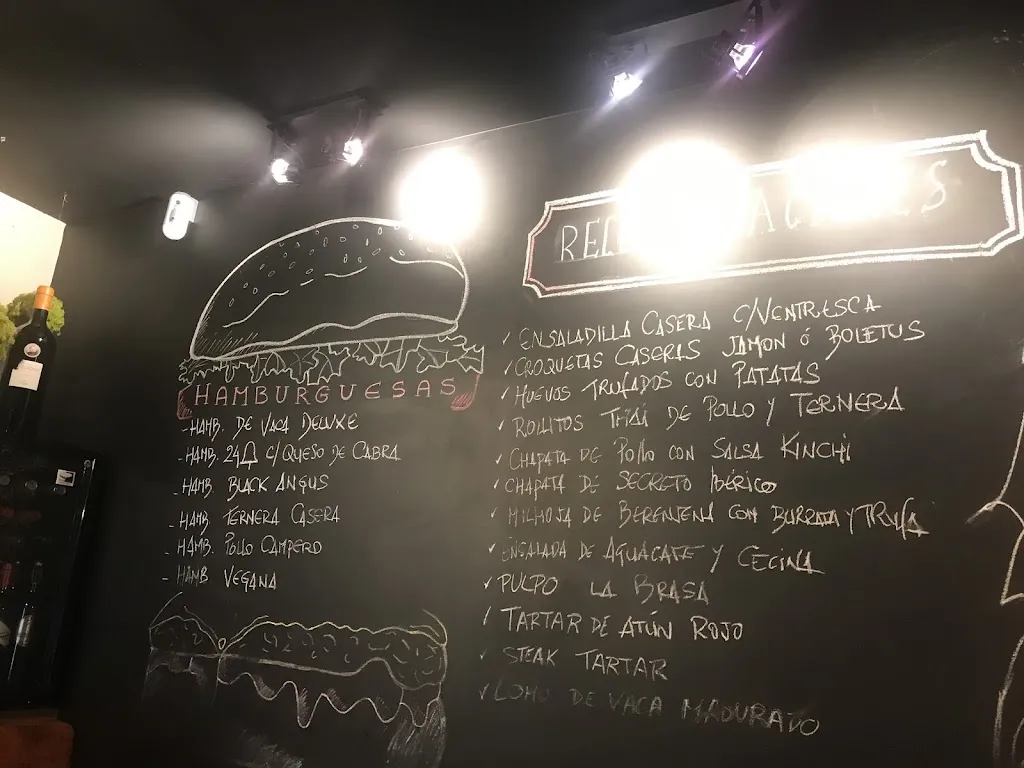 HAMBURGUESAS
- HAMB. DE VACA DELUXE
- HAMB. C/QUESO DE CABRA
- HAMB. BLACK ANGUS
- HAMB. TERNERA CASERA
- HAMB. POLLO CAMPERO
- HAMB VEGANA
✓ ENSALADILLA CASERA C/VENTRESCA
✓ CROQUETAS CASERAS JAMON ó BOLETUS
✓ HUEVOS TRUFADOS CON PATATAS
✓ ROLLITOS THAI DE POLLO Y TERNERA
✓ CHAPATA DE POLLO CON SALSA KINCHI
✓ CHAPATA DE SECRETO IBÉRICO
✓ MILHOJA DE BERENJENA CON BURRATA Y TRUFA
✓ ENSALADA DE AGUACATE Y CECINA
✓ PULPO LA BRASA
✓ TARTAR DE ATÚN ROJO
✓ STEAK TARTAR
✓ LOMO DE VACA MADURADO